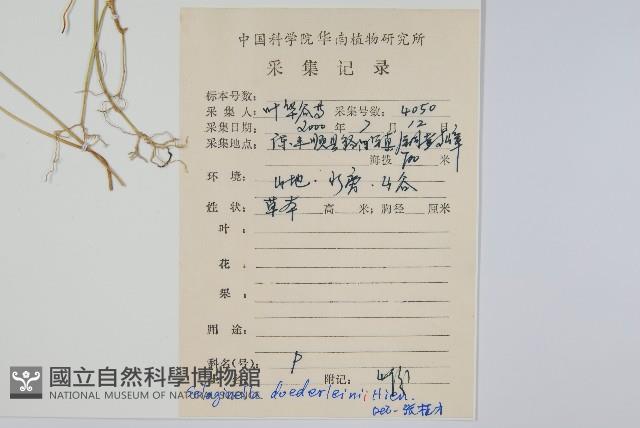 中国科学院华南植物研究所
采集记录
标本号数:
采集人: 叶华谷等 采集号数: 4050
采集日期: 2000年7月12日
采集地点: 顺县
海拔 700 米
环境: 山地·水旁·山谷
性状: 草本 高 米; 胸径 厘米
叶:
花:
果:
用途:
科名(号): P
附记:
Selaginella doederleinii Hien.
Det. 张桂才
國立自然科學博物館
NATIONAL MUSEUM OF NATURAL SCIENCE